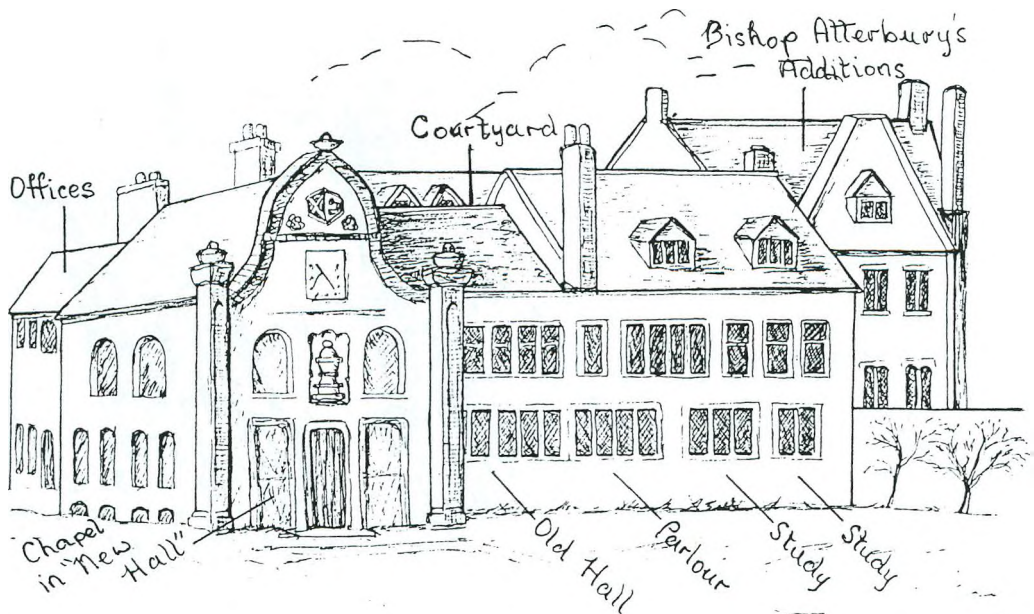 Bishop Atterbury's
Additions
Courtyard
Offices
Chapel
in "New
Hall"
Old Hall
Parlour
Study
Study